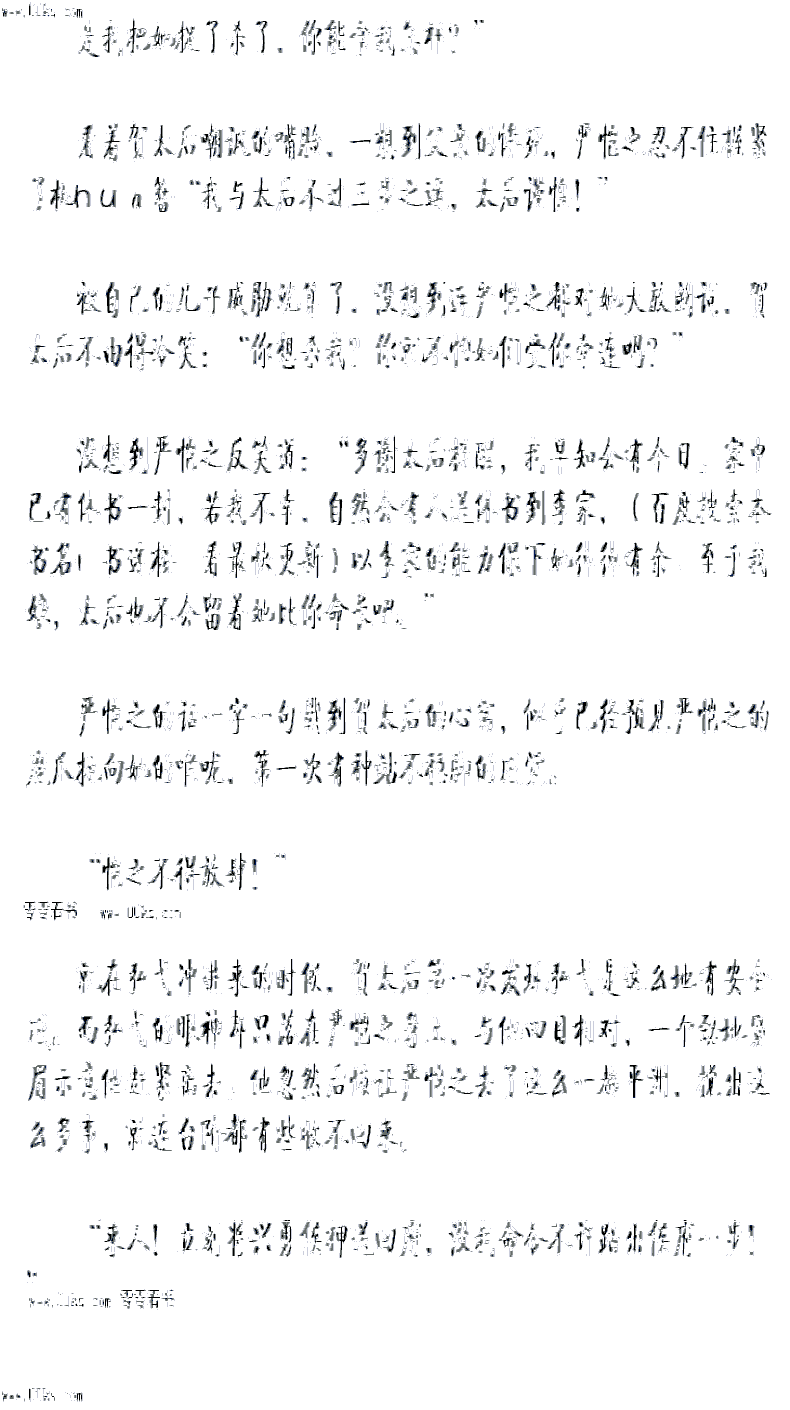 www.00ks.com
是我把她捉了杀了，你能拿我怎样？”
看着贺太后嘲讽的嘴脸，一想到父亲的惨死，严恺之忍不住握紧
了机hun簪“我与太后不过三步之遥，太后谨慎！”
被自己的儿子威胁就算了，没想到连严恺之都对她大放厥词，贺
太后不由得冷笑：“你想杀我？你就不怕她们受你牵连吗？”
没想到严恺之反笑道：“多谢太后提醒，我早知会有今日，家中
已有休书一封，若我不幸，自然会有人送休书到李家，（百度搜索本
书名 书 看最快更新）以李家的能力保下她绰绰有余，至于我
娘，太后也不会留着她比你命长吧。”
严恺之的话一字一句戳到贺太后的心窝，似乎已经预见严恺之的
魔爪掐向她的喉咙，第一次有种站不稳脚的感觉。
“恺之不得放肆！”
零零看书 www.00ks.com
就在弘弋冲进来的时候，贺太后第一次发现弘弋是这么地有安全
感。而弘弋的眼神却只落在严恺之身上，与他四目相对，一个劲地
眉示意他赶紧离去，他忽然后悔让严恺之去了这么一趟平洲，挖出这
么多事，就连台阶都有些收不回来。
“来人！立刻将兴勇侯押送回府，没我命令不许踏出侯府一步！
”
www.00ks.com 零零看书
www.00ks.com